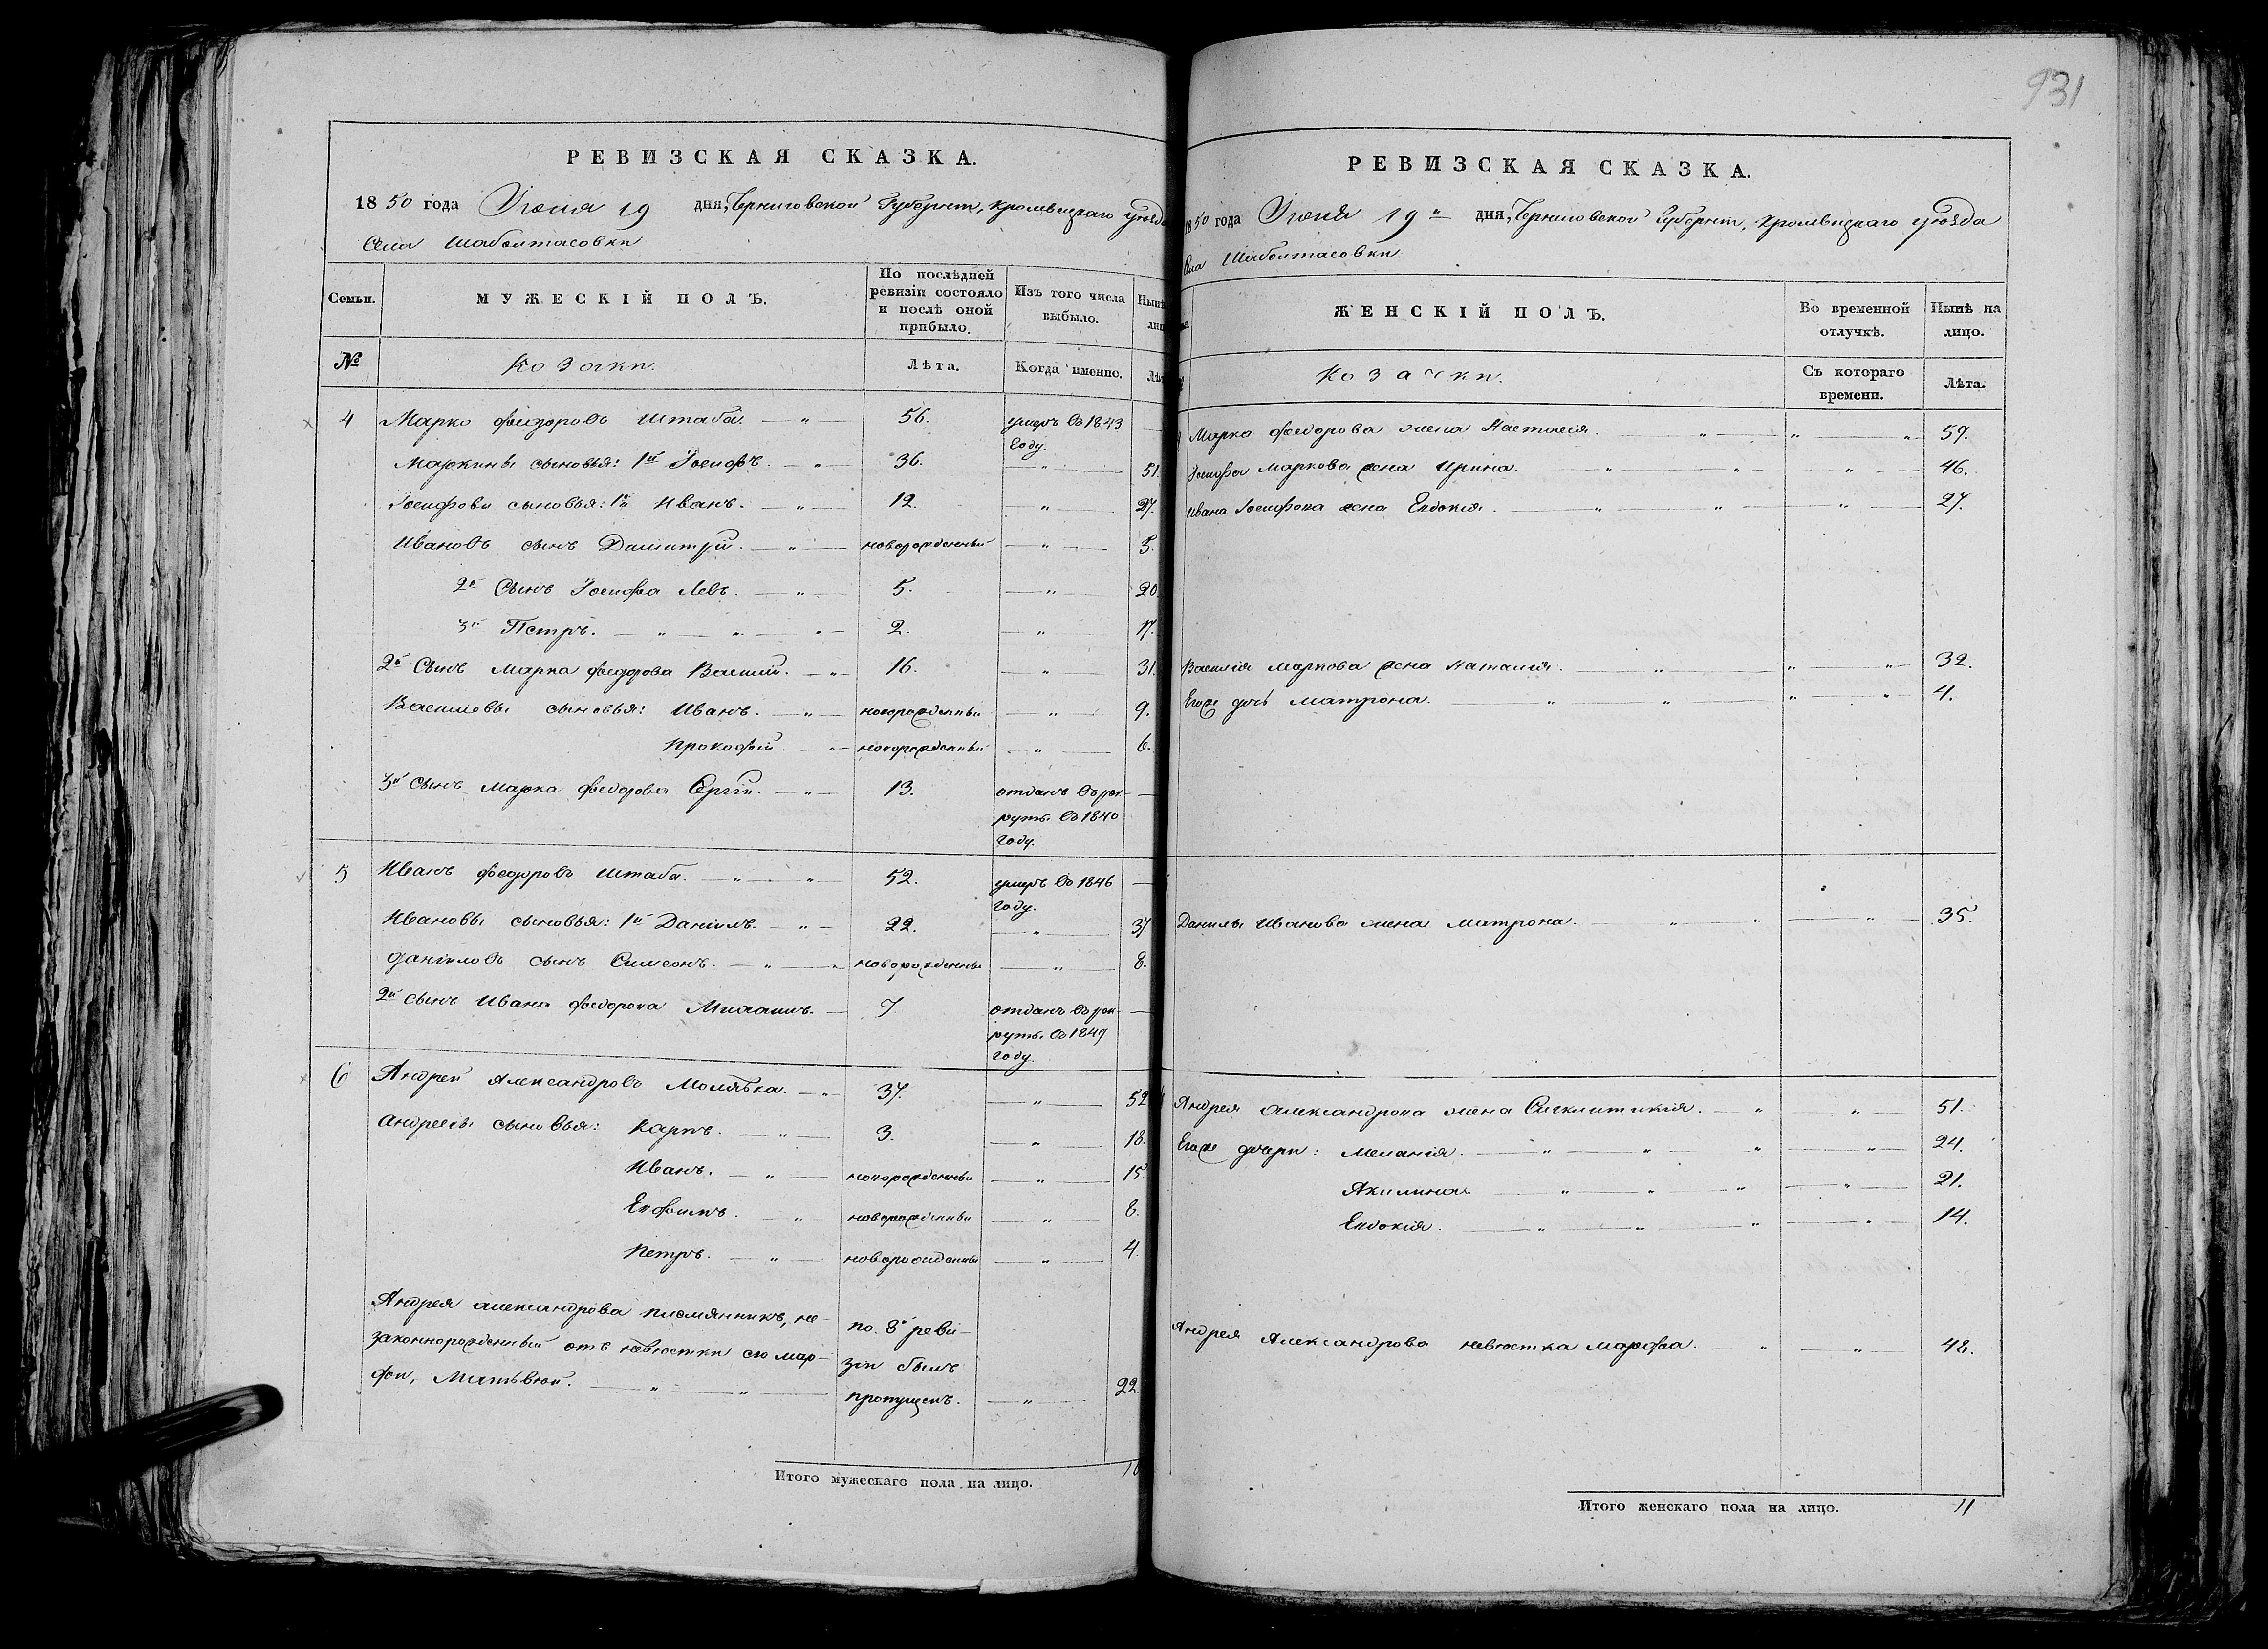 РЕВИЗСКАЯ СКАЗКА.
1850 года Іюня 19 дня, Черниговской Губерніи, Кролевецкаго уѣзда
Села Шаболтасовки
Семьи. МУЖЕСКІЙ ПОЛЪ. По послѣдней ревизіи состояло и послѣ оной прибыло. Изъ того числа выбыло.
№ Козаки. Лѣта. Когда именно.
4 Марко Федоровъ Штаба. — " — 56. умеръ въ 1843 году. —
Маркины сыновья: 1й Іосифъ. — " — 36. — " — 51.
Іосифовы сыновья: 1й Иванъ. — " — 12. " — 27.
Ивановъ сынъ Димитрій. — " — новорожденный — " — 5.
2й Сынъ Іосифа Левъ. — " — 5. — " — 20.
3й Петръ. — " — " — " — 2. — " — 17.
2й Сынъ Марка Федорова Василій. — " — 16. — " — 31.
Васильевы сыновья: Иванъ. — " — новорожденный — " — 9.
Прокофій. — " — новорожденный — " — 6.
3й Сынъ Марка Федорова Сергій. — " — 13. отданъ въ рек- —
руты въ 1840
году.
5 Иванъ Федоровъ Штаба. — " — " — 52. умеръ въ 1846 году. —
Ивановы сыновья: 1й Даніилъ. — " — 22. — " — 37.
Даніиловъ сынъ Симеонъ. — " — новорожденный — " — 8.
2й сынъ Ивана Федорова Михаилъ. — 7 отданъ въ рек- —
руты въ 1849
году.
6 Андрей Александровъ Молявка. — " 37. — " — 52
Андреевы сыновья: Карпъ. — " — 3. — " — 18.
Иванъ. — " — новорожденный — " — 15
Евфимъ. — " новорожденный — " — 8.
Петръ. — " — новорожденный — " — 4.
Андрея Александрова племянникъ, не- по 8й реви-
законнорожденный отъ невѣстки его Мар- зіи былъ
фы, Матвѣй. — " — " — пропущенъ. — " — 22.
Итого мужескаго пола на лицо.
931
РЕВИЗСКАЯ СКАЗКА.
1850 года Іюня 19 дня, Черниговской Губерніи, Кролевецкаго уѣзда
Села Шаболтасовки.
ЖЕНСКІЙ ПОЛЪ. Во временной отлучкѣ. Нынѣ на лицо.
Козачки. Съ котораго времени. Лѣта.
Марко Федорова жена Настасія. " — " — " 59.
Іосифа Маркова жена Ирина. " " — " — 46.
Ивана Іосифова жена Евдокія. — " — " — " — 27.
Василія Маркова жена Наталія. — " — " — " 32.
Егоже дочь Матрона. — " — " — " — " 4.
Данилы Иванова жена Матрона. " " — " — 35.
Андрея Александрова жена Синклитикія. — " " — 51.
Егоже дочери: Меланія. — " — " — " — " — 24.
Акилина. — " — " — " — " — 21.
Евдокія. — " — " — " — " — 14.
Андрея Александрова невѣстка Марфа. — " — " — 48.
Итого женскаго пола на лицо. 11